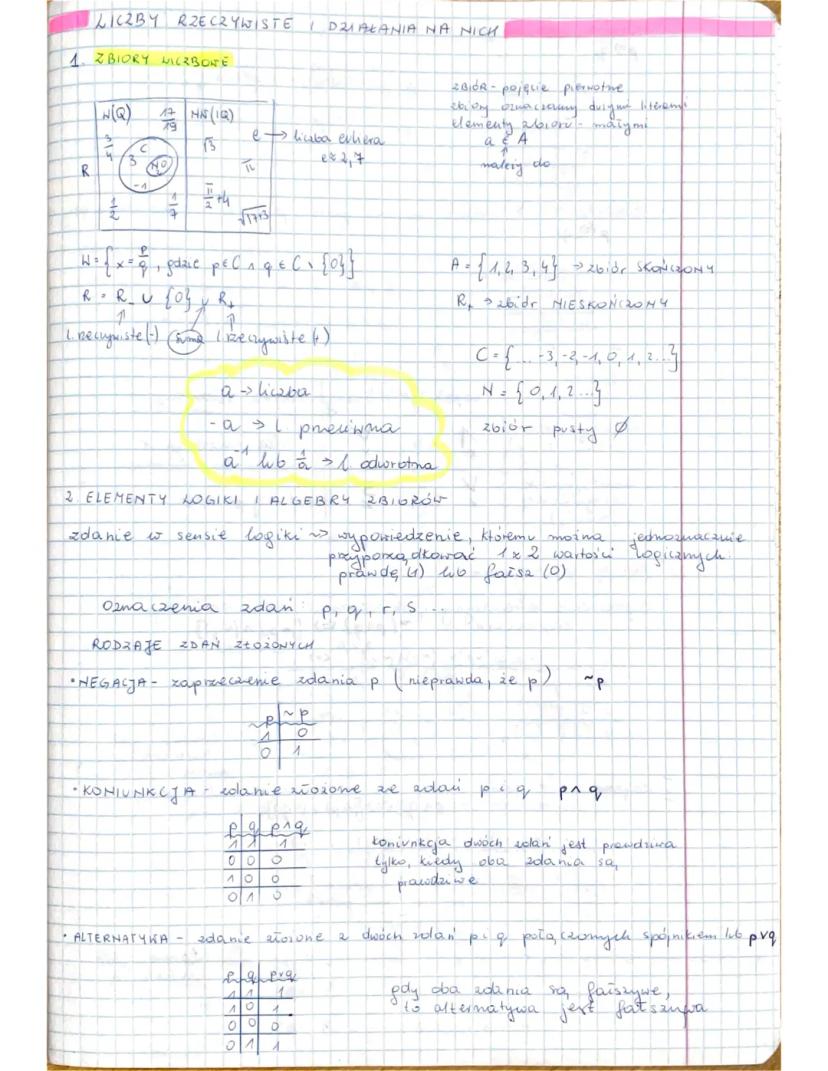 LICZBY RZECZYWISTE I DZIAŁANIA NA NICH
1. ZBIORY LICZBOWE
ZBIÓR - pojęcie pierwotne
zbiory oznaczamy dużymi literami
elementy zbioru - małymi
a ∈ A
↑
należy do
W(Q) 17/19 NW(IQ)
3/4 C 3 N 0 -1 √3 e → liczba eulera
e ≈ 2,7
R π
1/2 1/7 π/2+4 √17+3
W = {x = p/q, gdzie p ∈ C ∧ q ∈ C \ {0}}
A = {1,2,3,4} → zbiór SKOŃCZONY
R = R₋ ∪ {0} ∪ R₊
R₊ → zbiór NIESKOŃCZONY
l. rzeczywiste (-) suma l. rzeczywiste (+)
C = {...-3,-2,-1,0,1,2...}
a → liczba
N = {0,1,2...}
-a → l. przeciwna
zbiór pusty ∅
a⁻¹ lub 1/a → l. odwrotna
2. ELEMENTY LOGIKI I ALGEBRY ZBIORÓW
zdanie w sensie logiki ~> wypowiedzenie, któremu można jednoznacznie
przyporządkować 1 z 2 wartości logicznych.
prawdę (1) lub fałsz (0)
Oznaczenia zdań p, q, r, s ...
RODZAJE ZDAŃ ZŁOŻONYCH
• NEGACJA - zaprzeczenie zdania p (nieprawda, że p) ~p
p ~p
1 0
0 1
• KONIUNKCJA - zdanie złożone ze zdań p i q p∧q
p q p∧q
1 1 1
0 0 0
1 0 0
0 1 0
koniunkcja dwóch zdań jest prawdziwa
tylko, kiedy oba zdania są
prawdziwe
• ALTERNATYWA - zdanie złożone z dwóch zdań p i q połączonych spójnikiem lub p∨q
p q p∨q
1 1 1
1 0 1
0 0 0
0 1 1
gdy oba zdania są fałszywe,
to alternatywa jest fałszywa